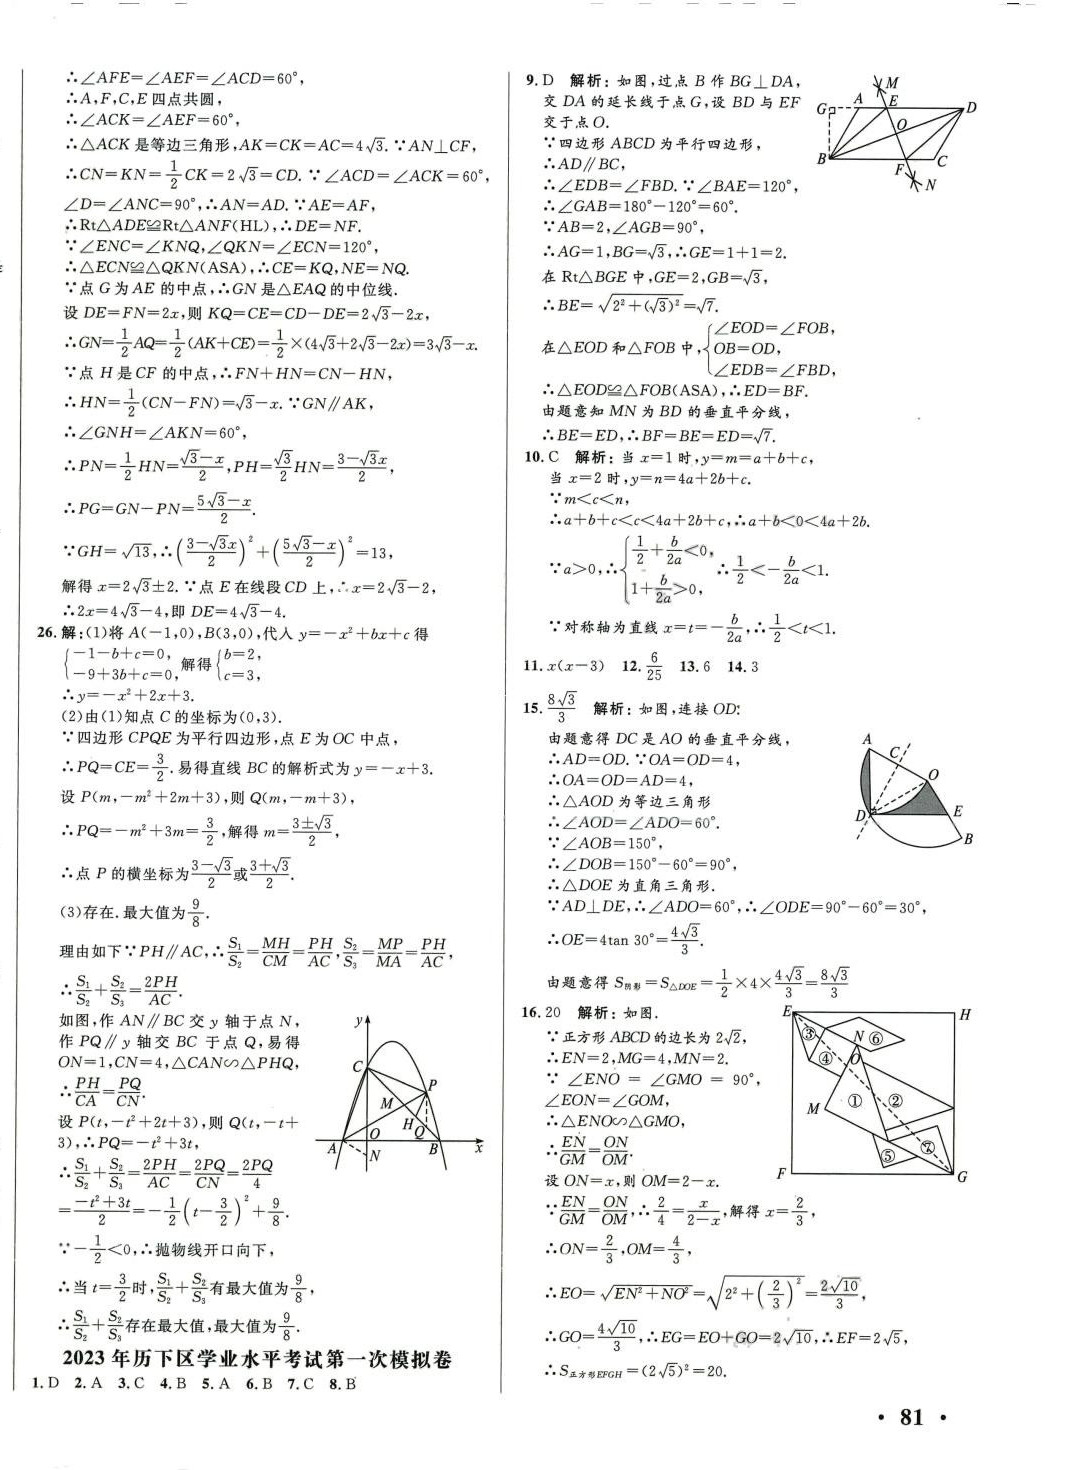 ∴∠AFE=∠AEF=∠ACD=60°,
∴A,F,C,E四点共圆,
∴∠ACK=∠AEF=60°,
∴△ACK是等边三角形,AK=CK=AC=4√3.∵AN⊥CF,
∴CN=KN=1/2CK=2√3=CD.∵∠ACD=∠ACK=60°,
∠D=∠ANC=90°,∴AN=AD.∵AE=AF,
∴Rt△ADE≌Rt△ANF(HL),∴DE=NF.
∵∠ENC=∠KNQ,∠QKN=∠ECN=120°,
∴△ECN≌△QKN(ASA),∴CE=KQ,NE=NQ.
∵点G为AE的中点,∴GN是△EAQ的中位线.
设DE=FN=2x,则KQ=CE=CD-DE=2√3-2x,
∴GN=1/2AQ=1/2(AK+CE)=1/2×(4√3+2√3-2x)=3√3-x.
∵点H是CF的中点,∴FN+HN=CN-HN,
∴HN=1/2(CN-FN)=√3-x.∵GN∥AK,
∴∠GNH=∠AKN=60°,
∴PN=1/2HN=(√3-x)/2,PH=√3/2HN=(3-√3x)/2,
∴PG=GN-PN=(5√3-x)/2.
∵GH=√13,∴((3-√3x)/2)²+((5√3-x)/2)²=13,
解得x=2√3±2.∵点E在线段CD上,∴x=2√3-2,
∴2x=4√3-4,即DE=4√3-4.
26.解:(1)将A(-1,0),B(3,0),代入y=-x²+bx+c得
{-1-b+c=0, -9+3b+c=0, 解得{b=2, c=3,
∴y=-x²+2x+3.
(2)由(1)知点C的坐标为(0,3).
∵四边形CPQE为平行四边形,点E为OC中点,
∴PQ=CE=3/2.易得直线BC的解析式为y=-x+3.
设P(m,-m²+2m+3),则Q(m,-m+3),
∴PQ=-m²+3m=3/2,解得m=(3±√3)/2,
∴点P的横坐标为(3-√3)/2或(3+√3)/2.
(3)存在.最大值为9/8.
理由如下∵PH∥AC,∴S₁/S₂=MH/CM=PH/AC,S₂/S₃=MP/MA=PH/AC,
∴S₁/S₂+S₂/S₃=2PH/AC.
如图,作AN∥BC交y轴于点N,
作PQ∥y轴交BC于点Q,易得
ON=1,CN=4,△CAN∽△PHQ,
∴PH/CA=PQ/CN.
设P(t,-t²+2t+3),则Q(t,-t+
3),∴PQ=-t²+3t,
∴S₁/S₂+S₂/S₃=2PH/AC=2PQ/CN=2PQ/4
=(-t²+3t)/2=-1/2(t-3/2)²+9/8.
∵-1/2<0,∴抛物线开口向下,
∴当t=3/2时,S₁/S₂+S₂/S₃有最大值为9/8,
∴S₁/S₂+S₂/S₃存在最大值,最大值为9/8.
y
C
P
M
H
Q
A
O
B
x
N
2023年历下区学业水平考试第一次模拟卷
1.D 2.A 3.C 4.B 5.A 6.B 7.C 8.B
9.D 解析:如图,过点B作BG⊥DA,
交DA的延长线于点G,设BD与EF
交于点O.
∵四边形ABCD为平行四边形,
∴AD∥BC,
∴∠EDB=∠FBD.∵∠BAE=120°,
∴∠GAB=180°-120°=60°.
∵AB=2,∠AGB=90°,
∴AG=1,BG=√3,∴GE=1+1=2.
在Rt△BGE中,GE=2,GB=√3,
∴BE=√(2²+(√3)²)=√7.
在△EOD和△FOB中,{∠EOD=∠FOB, OB=OD, ∠EDB=∠FBD,
∴△EOD≌△FOB(ASA),∴ED=BF.
由题意知MN为BD的垂直平分线,
∴BE=ED,∴BF=BE=ED=√7.
M
G
A
E
D
O
B
F
C
N
10.C 解析:当x=1时,y=m=a+b+c,
当x=2时,y=n=4a+2b+c.
∵m<c<n,
∴a+b+c<c<4a+2b+c,∴a+b<0<4a+2b.
∵a>0,∴{1/2+b/2a<0, 1+b/2a>0, ∴1/2<-b/2a<1.
∵对称轴为直线x=t=-b/2a,∴1/2<t<1.
11.x(x-3) 12.6/25 13.6 14.3
15.8√3/3 解析:如图,连接OD:
由题意得DC是AO的垂直平分线,
∴AD=OD.∵OA=OD=4,
∴OA=OD=AD=4,
∴△AOD为等边三角形
∴∠AOD=∠ADO=60°.
∵∠AOB=150°,
∴∠DOB=150°-60°=90°,
∴△DOE为直角三角形.
∵AD⊥DE,∴∠ADO=60°,∴∠ODE=90°-60°=30°,
∴OE=4tan 30°=4√3/3.
由题意得S阴影=S△DOE=1/2×4×4√3/3=8√3/3
A
C
O
D
E
B
16.20 解析:如图.
∵正方形ABCD的边长为2√2,
∴EN=2,MG=4,MN=2.
∵∠ENO=∠GMO=90°,
∠EON=∠GOM,
∴△ENO∽△GMO,
∴EN/GM=ON/OM.
设ON=x,则OM=2-x.
∵EN/GM=ON/OM,∴2/4=x/(2-x),解得x=2/3,
∴ON=2/3,OM=4/3,
∴EO=√(EN²+NO²)=√(2²+(2/3)²)=2√10/3,
∴GO=4√10/3,∴EG=EO+GO=2√10,∴EF=2√5,
∴S正方形EFGH=(2√5)²=20.
E
H
③
N
⑥
④
O
M
①
②
⑤
⑦
F
G
· 81 ·